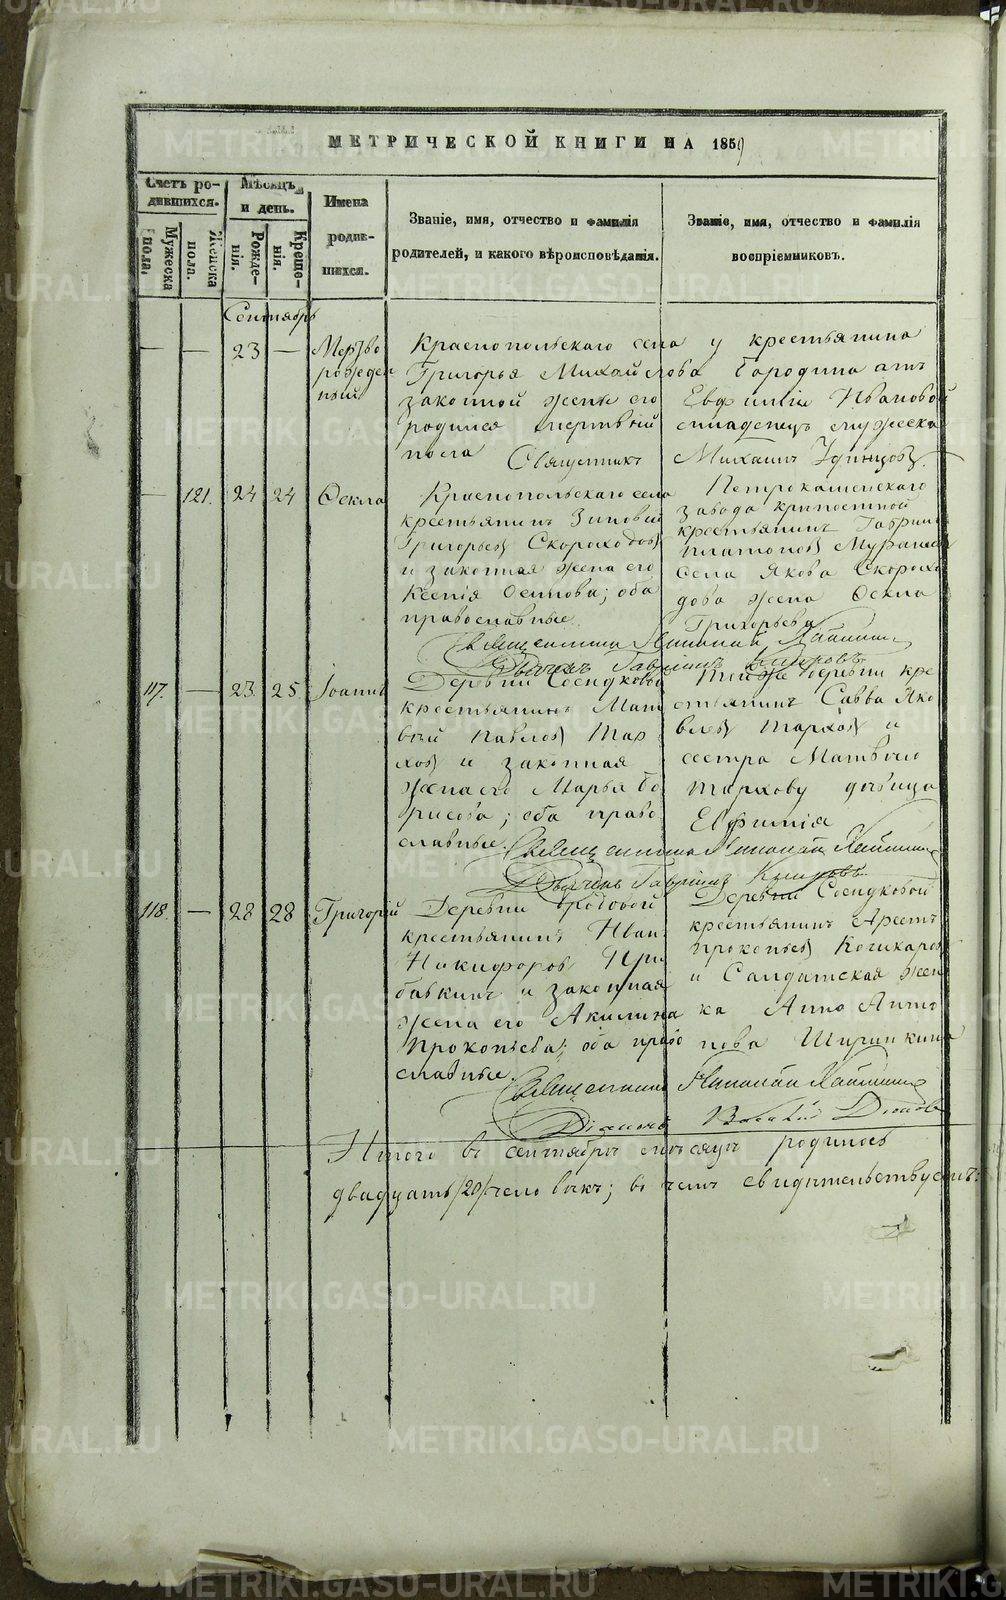 МЕТРИЧЕСКОЙ КНИГИ НА 1859
Счетъ ро-
дившихся.
Мужеска
пола.
Женска
пола.
Мѣсяцъ
и день.
Рожде-
нія.
Креще-
нія.
Имена
родив-
шихся.
Званіе, имя, отчество и фамилія
родителей, и какого вѣроисповѣданія.
Званіе, имя, отчество и фамилія
воспріемниковъ.
Сентябрь
— — 23 —
Мертво
рожден
ный
Краснопольскаго села у крестьянина
Григорья Михайлова Бородина отъ
законной жены его Евфиміи Ивановой
родился мертвый младенецъ мужеска
пола
Священникъ Михаилъ Удинцовъ.
— 121. 24 24 Ѳекла
Краснопольскаго села
крестьянинъ Зиновій
Григорьевъ Скороходовъ
и законная жена его
Ксенія Осипова; оба
православные.
Петрокаменскаго
завода крипостной
крестьянинъ Гаврилъ
Платоновъ
Села Якова Скорохо
дова жена Ѳекла
Григорьева
Священникъ Николай
Дьячекъ Гавріилъ
117. — 23 25 Іоаннъ
Деревни Соседковой
крестьянинъ Мат
вѣй Павловъ Тар
ховъ и законная
жена его Марья Бо
рисова; оба право
славные.
Тойже деревни кре
стьянинъ Савва Яко
влевъ Тарховъ и
сестра Матвѣю
Тархову дѣвица
Евфимія
Священникъ Николай
Дьячекъ Гавріилъ
118. — 28 28 Григорій
Деревни Бродовой
крестьянинъ Иванъ
Никифоровъ При
бавкинъ и законная
жена его Акилина
Прокопьева; оба право
славные.
Деревни Соседковой
крестьянинъ Арестъ
Прокопьевъ Кочкаровъ
и Солдатская жен
ка Анна Анто
нова Ширинкина
Священникъ Николай
Діаконъ Василій
Итого въ сентябрѣ мѣсяцѣ родилось
двадцать /20/ человѣкъ; въ чемъ свидѣтельствуемъ:
METRIKI.GASO-URAL.RU